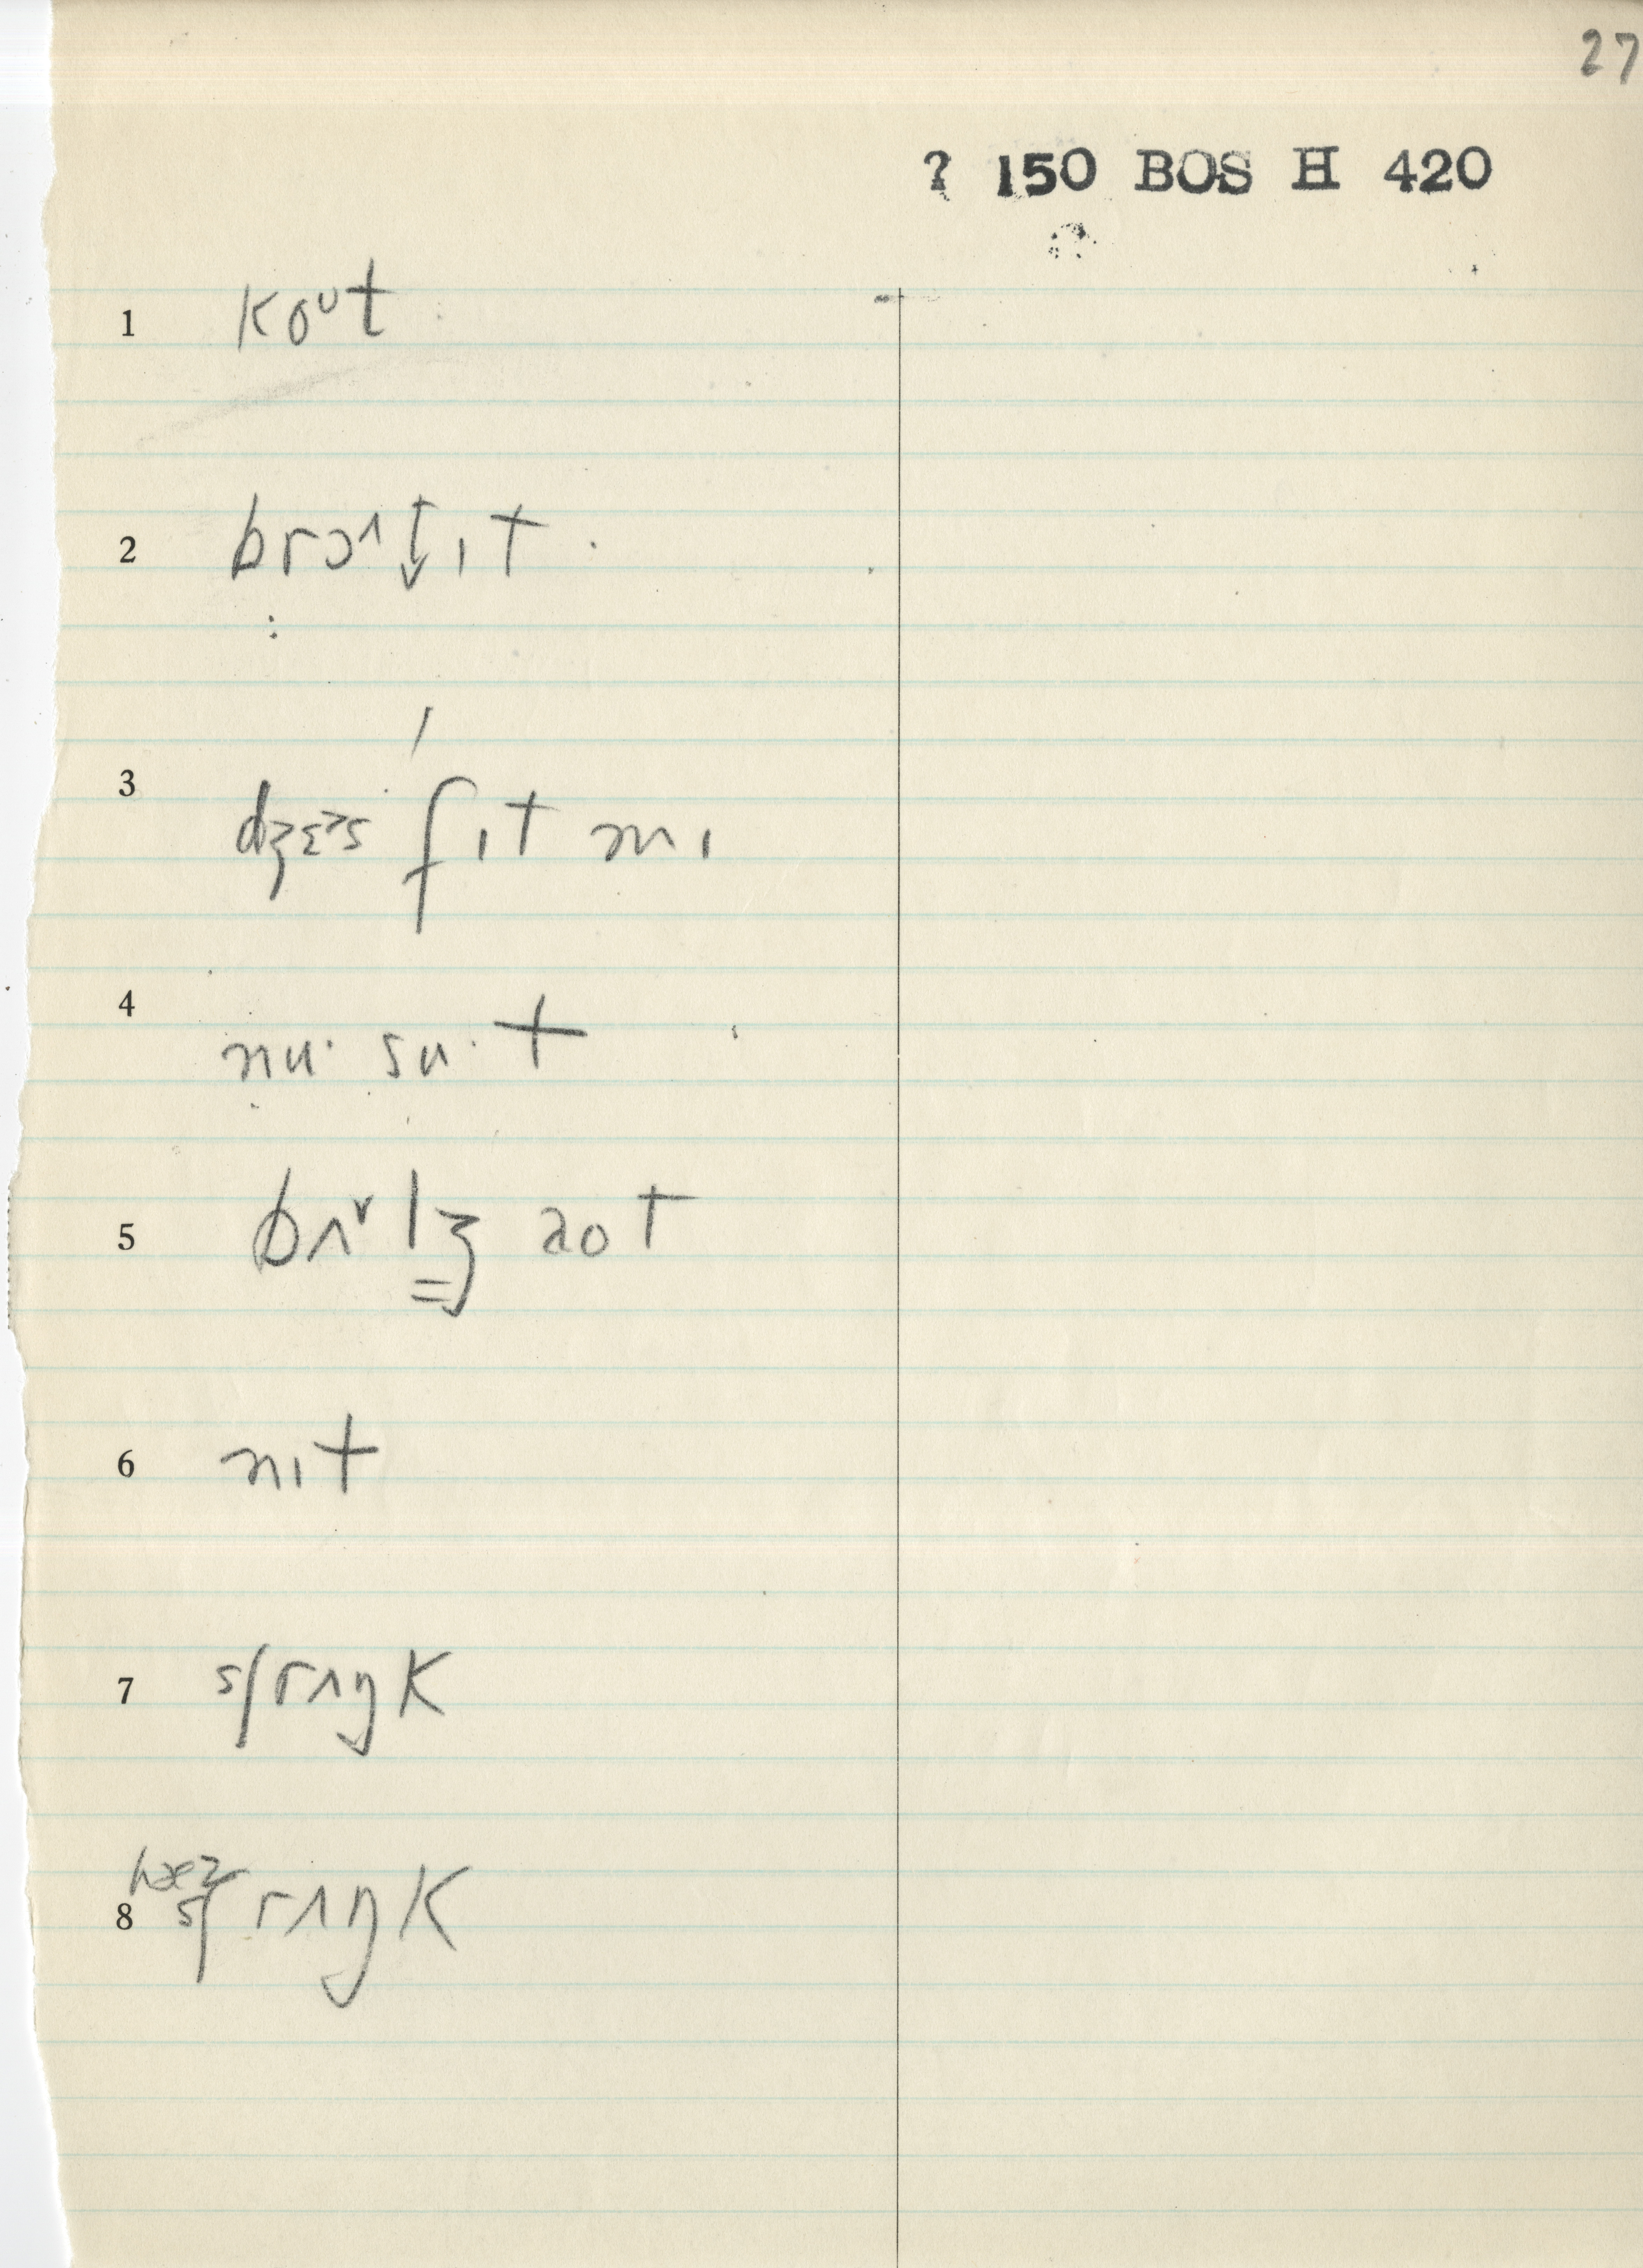 27
? 150 BOS H 420
1 koᶷt
2 brɔ^t̬ ɪt
3 dʒɛɜs fɪt mɪ
4 nu· su·t
5 bʌᵛlʒ aot
6 nɪt
7 ʃrʌŋk
8 hæz ʃrʌŋk